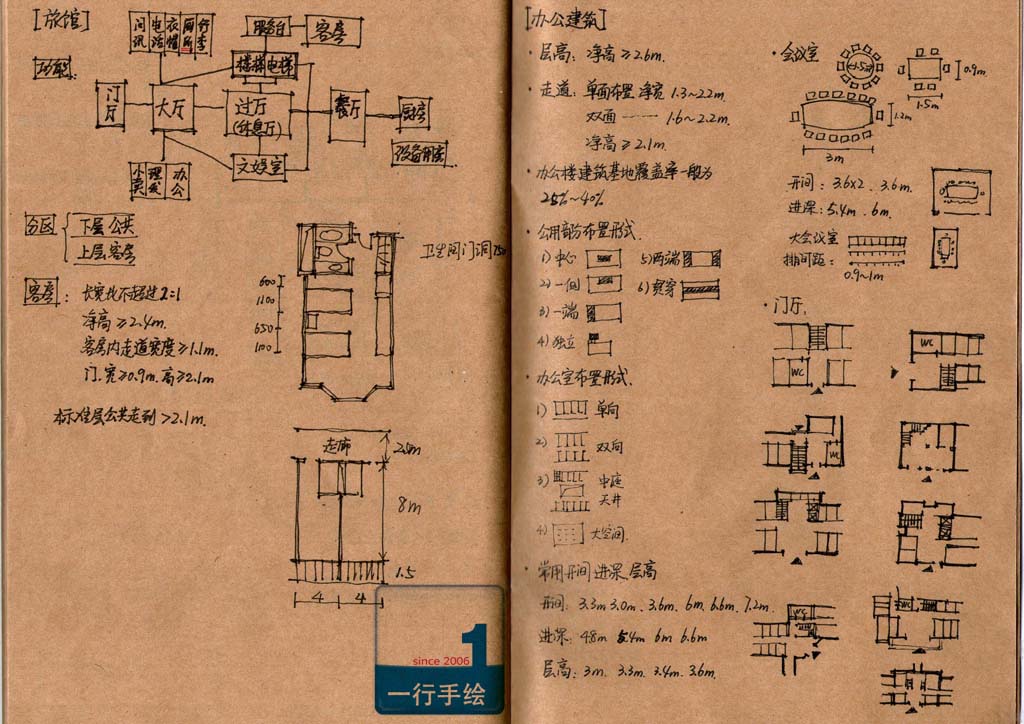 [旅馆]
问讯 电话 衣帽 厕所 行李
服务台
客房
功能:
楼梯 电梯
门厅
大厅
过厅
(休息厅)
餐厅
厨房
设备用房
小卖 理发 办公
文娱室
分区
下层公共
上层客房
卫生间门洞750
客房: 长宽比不超过2:1
净高≥2.4m.
客房内走道宽度≥1.1m.
门.宽≥0.9m.高≥2.1m
标准层公共走到>2.1m.
600
1100
650
1100
走廊
8m
1.5
4 4
since 2006
1
一行手绘
[办公建筑]
·层高: 净高≥2.6m.
·走道: 单面布置 净宽 1.3~2.2m.
双面 —— 1.6~2.2m.
净高≥2.1m.
·办公楼建筑基地覆盖率一般为
25%~40%
·公用部分布置形式.
1)中心
2)一侧
3)一端
4)独立
5)两端
6)贯穿
·办公室布置形式.
1) 单向
2) 双向
3) 中庭
天井
4) 大空间.
·常用开间.进深.层高
开间: 3.3m 3.0m. 3.6m. 6m. 6.6m. 7.2m.
进深: 4.8m 5.4m 6m 6.6m
层高: 3m. 3.3m 3.4m. 3.6m.
·会议室
0.9m
1.5m
1.2m
3m
开间: 3.6x2. 3.6m.
进深: 5.4m. 6m.
大会议室
排间距:
0.9~1m
·门厅.
WC
WC
WC
WC
WC